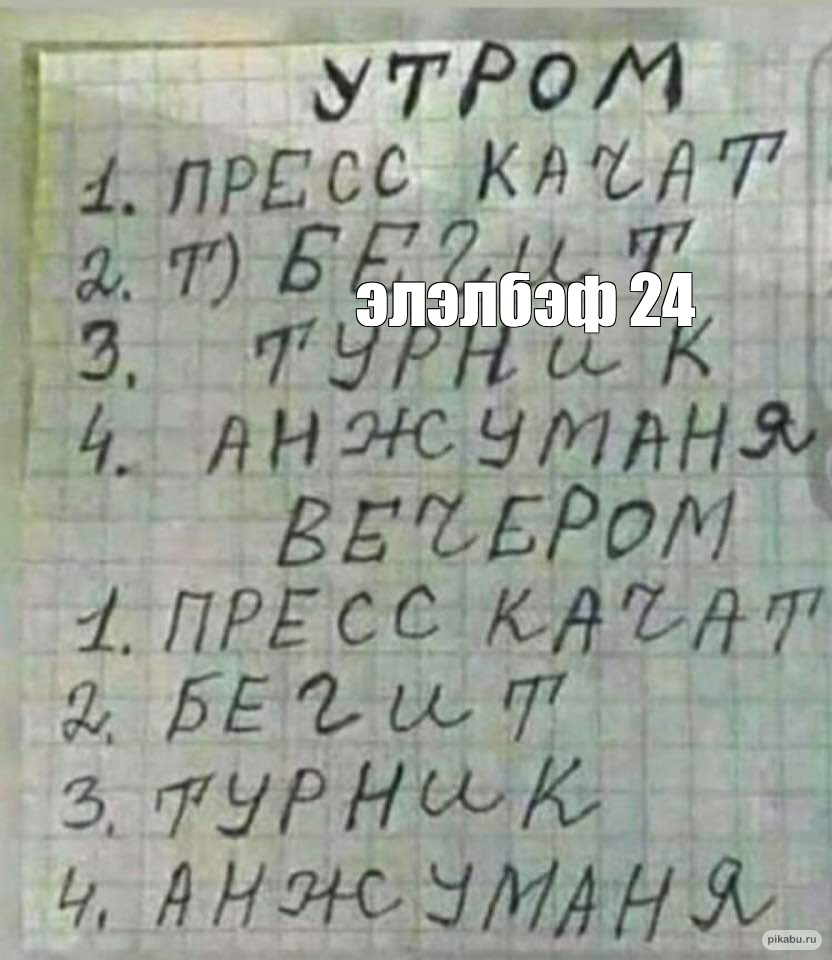 УТРОМ
1. ПРЕСС КАЧАТ
2. Т) БЕГИТ
элэлбэф 24
3. ТУРНИК
4. АНЖУМАНЯ
ВЕЧЕРОМ
1. ПРЕСС КАЧАТ
2. БЕГИТ
3. ТУРНИК
4. АНЖУМАНЯ
pikabu.ru